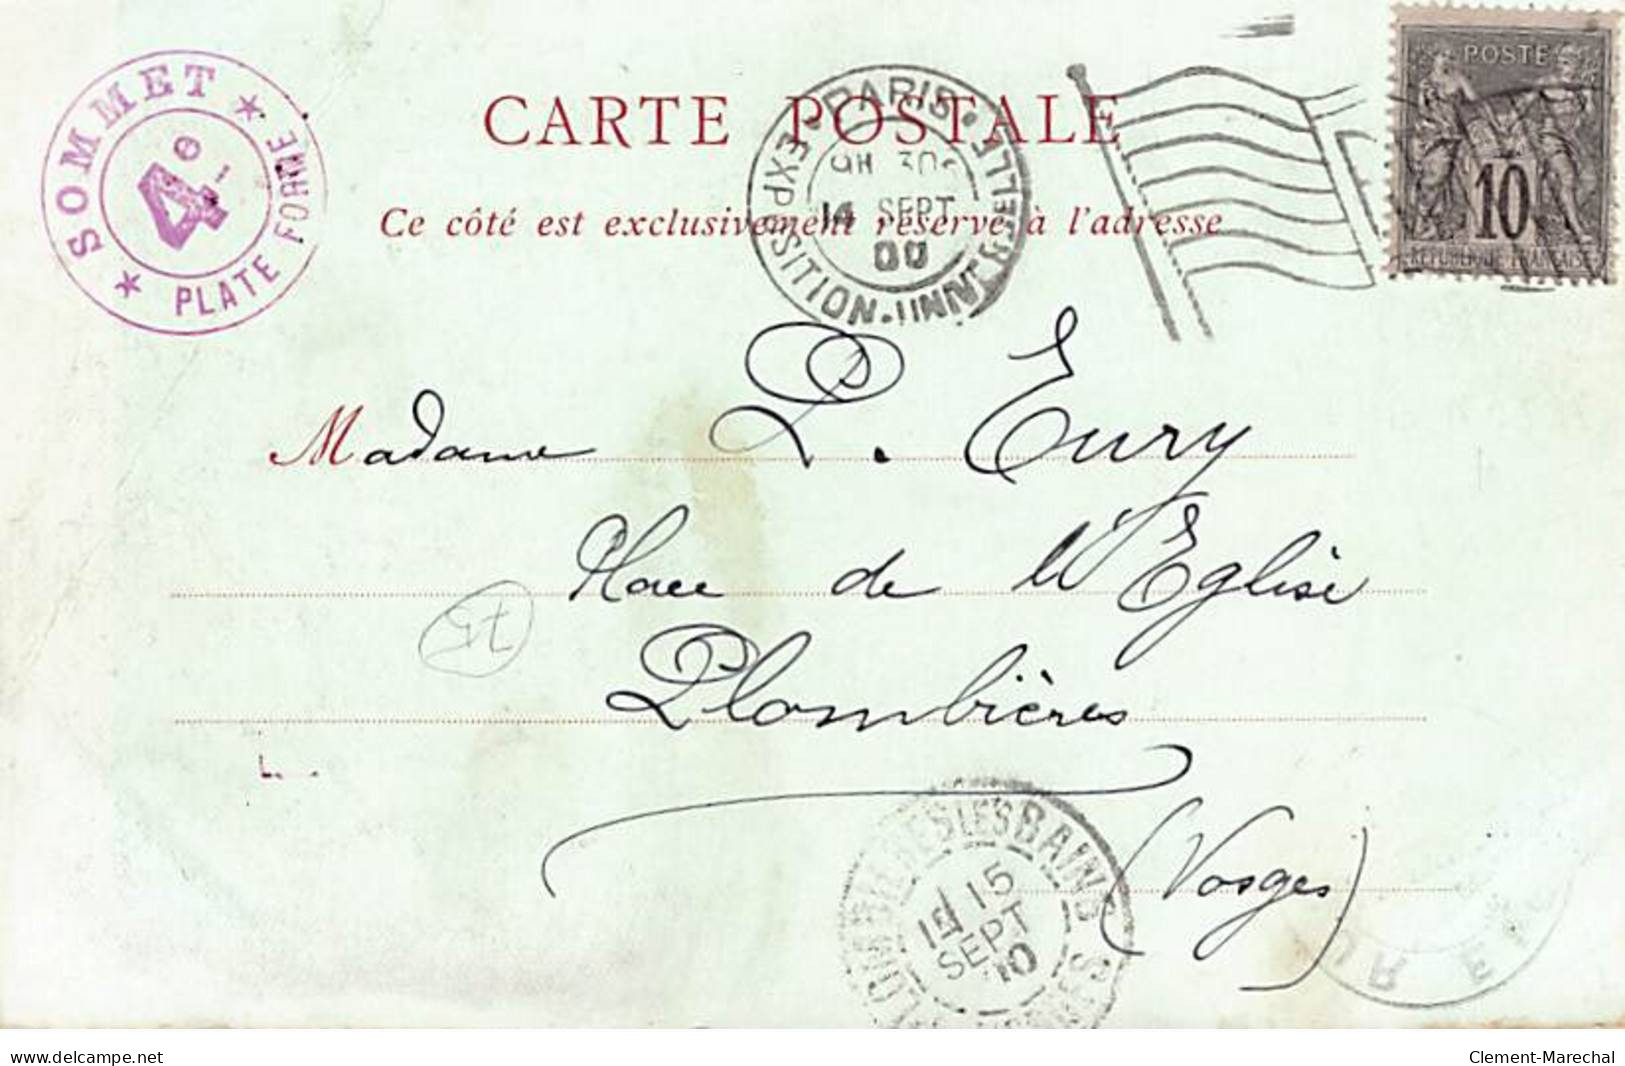 SOMMET
4e
PLATE FORME
CARTE POSTALE
Ce côté est exclusivement réservé à l'adresse
PARIS
EXPOSITION
9H 30
14 SEPT
00
POSTE
10
REPUBLIQUE FRANÇAISE
Madame P. Eury
Place de l'Eglise
Plombières
(Vosges)
PLOMBIERES LES BAINS
15
SEPT
00
VOSGES
www.delcampe.net
Clement-Marechal